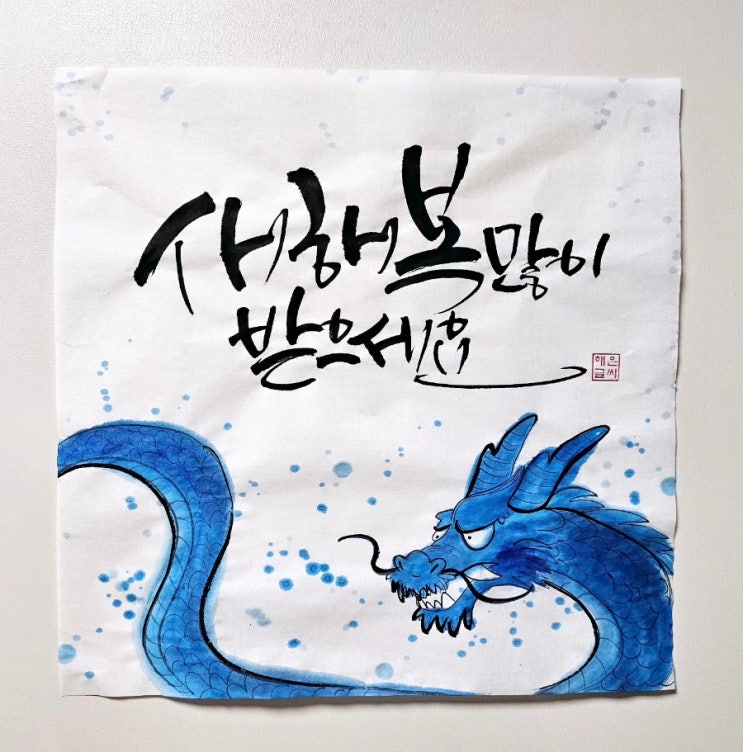 새해 복 많이
받으세요
해은
글씨